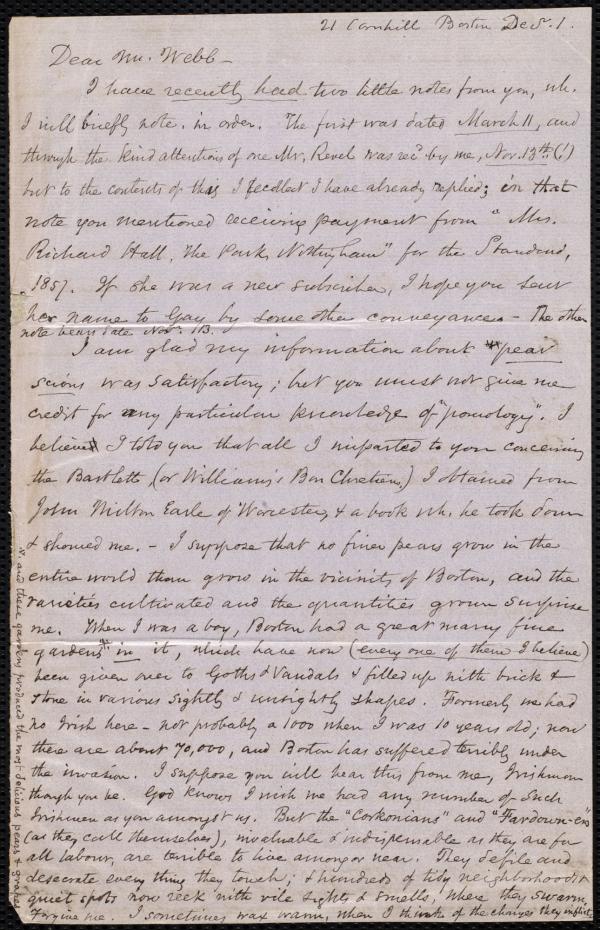 21 Cornhill Boston Dec. 1.
Dear Mr. Webb –
I have recently had two little notes from you, wh.
I will briefly note, in order. The first was dated March 11, and
through the kind attentions of one Mr. Revel was recd by me, Nov. 13th (!)
but to the contents of this I recollect I have already replied; in that
note you mentioned receiving payment from "Mrs.
Richard Hall, The Park, Nottingham" for the Standard,
1857. If she was a new subscriber, I hope you sent
her name to Gay by some other conveyance. – The other
note bears date Nov. 13.
I am glad my information about "pear
scions was satisfactory; but you must not give me
credit for any particular knowledge of "pomology". I
believe I told you that all I imparted to you concerning
the Bartlett (or Williams's Bon Chretien,) I obtained from
John Milton Earle of Worcester, & a book wh. he took down
& showed me. – I suppose that no finer pears grow in the
entire world than grow in the vicinity of Boston, and the
varieties cultivated and the quantities grown surprise
me. When I was a boy, Boston had a great many fine
gardens* in it, which have now (every one of them I believe)
been given over to Goths & Vandals & filled up with brick &
stone in various sightly & unsightly shapes. Formerly we had
no Irish here – not probably a 1000 when I was 10 years old; now
there are about 70,000, and Boston has suffered terribly under
the invasion. I suppose you will hear this from me, Irishman
though you be. God knows I wish we had any number of such
Irishmen as you amongst us. But the "Corkonians" and "Fardown-ers"
(as they call themselves), invaluable & indispensable as they are for
all labour, are terrible to live among or near. They defile and
desecrate every thing they touch; & hundreds of tidy neighborhoods &
quiet spots now reek with vile sights & smells, where they swarm.
Forgive me. I sometimes wax warm, when I think of the changes they inflict.
*, and these gardens produced the most delicious pears & grapes